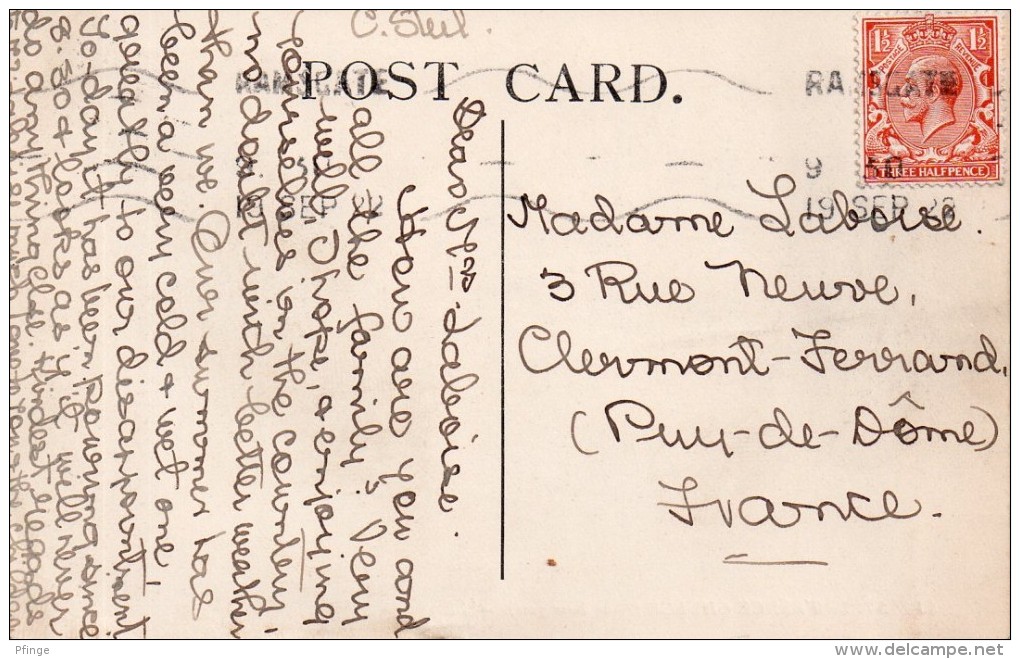 C. Steil.
POST CARD.
RAMSGATE
RAMSGATE
9 30
19 SEP
19 SEP 22
1½ 1½
POSTAGE REVENUE
THREE HALFPENCE
Dear Mme Laboise.
How are you and
all the family? Very
well I hope, & enjoying
yourselves in the country
no doubt with better weather
than we. Our summer has
been a very cold & wet one
greatly to our disappointment
To-day it has been pouring since
8. & looks as if it will never
do anything else. Kindest regards
Madame Laboise.
3 Rue Neuve,
Clermont-Ferrand,
(Puy-de-Dôme)
France.
Pfinge
delcampe.net